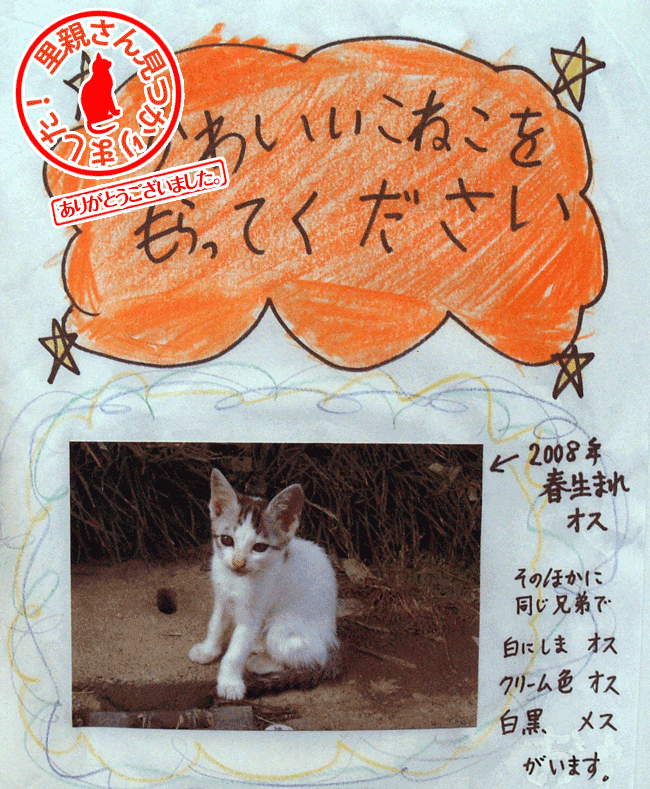 里親さん見つかりました！
ありがとうございました。
かわいいこねこを
もらってください
← 2008年
春生まれ
オス
そのほかに
同じ兄弟で
白にしま オス
クリーム色 オス
白黒、メス
がいます。